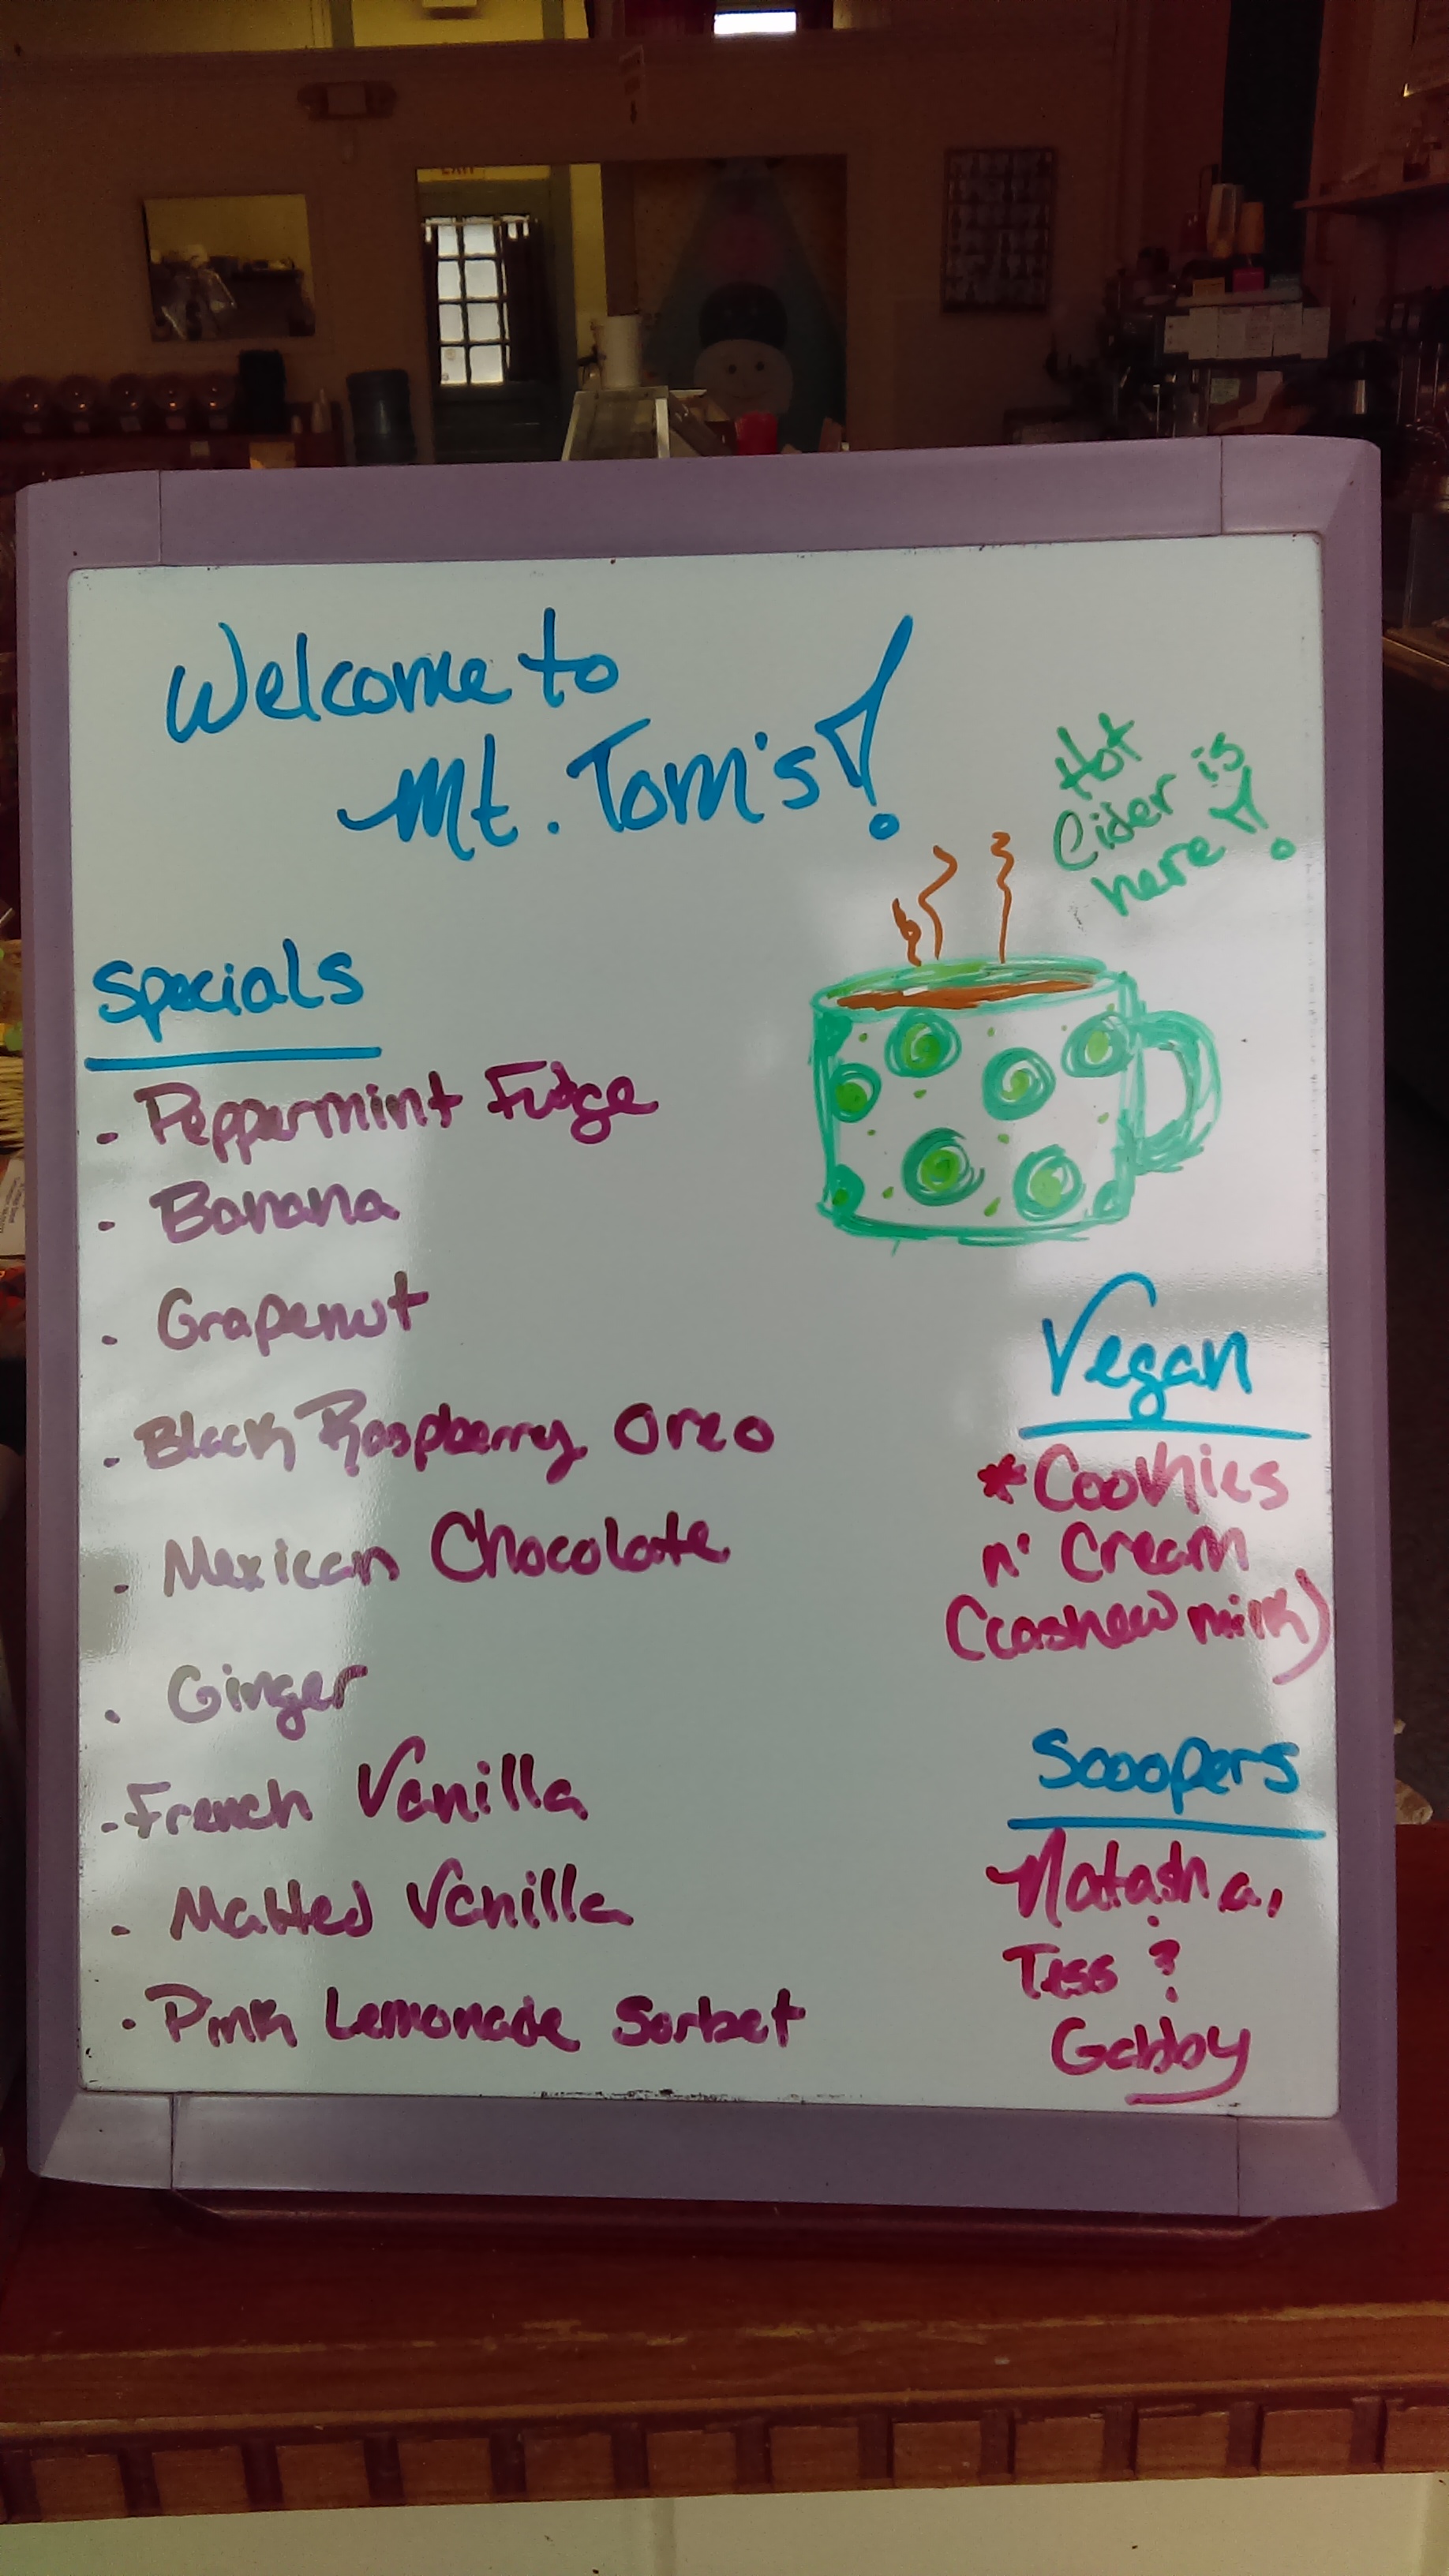 Welcome to
Mt. Tom's!
Hot
Cider is
here!
Specials
• Peppermint Fudge
• Banana
• Grapenut
• Black Raspberry Oreo
• Mexican Chocolate
• Ginger
• French Vanilla
• Malted Vanilla
• Pink Lemonade Sorbet
Vegan
*Cookies
n' Cream
(cashew milk)
Scoopers
Natasha,
Tess &
Gabby
EXIT